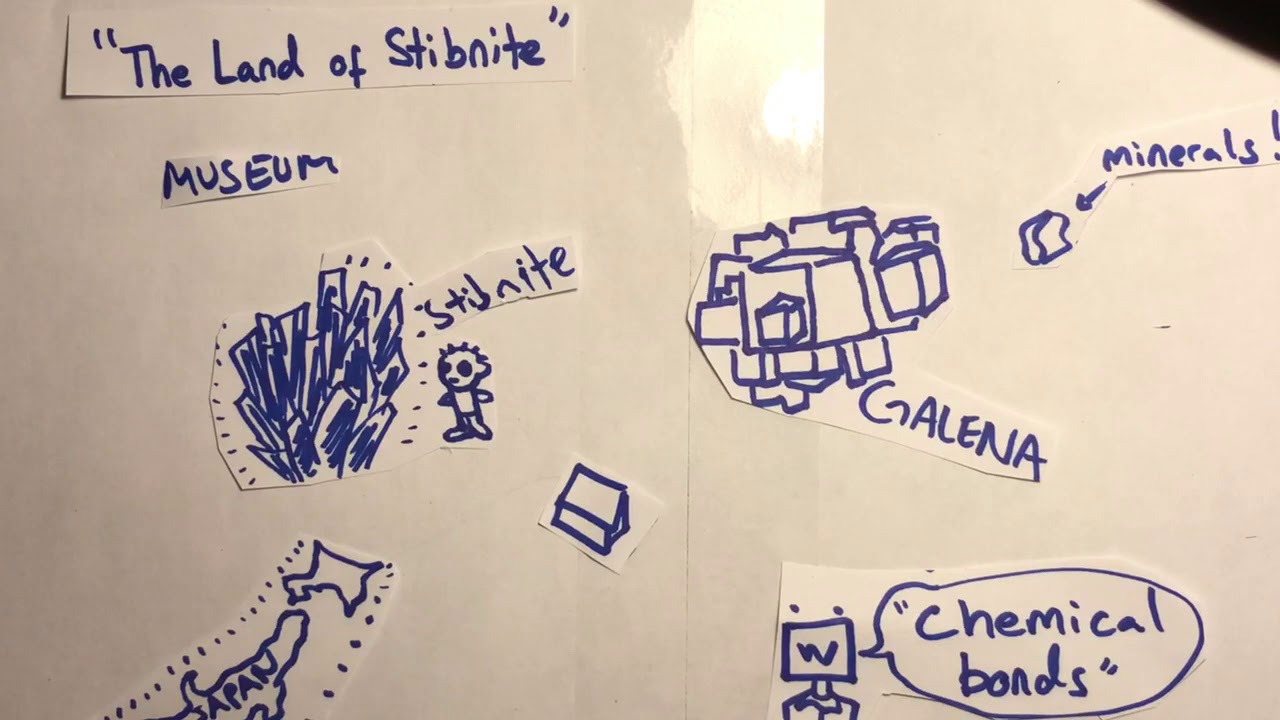 "The Land of Stibnite"
MUSEUM
minerals!
stibnite
GALENA
JAPAN
W
"Chemical
bonds"